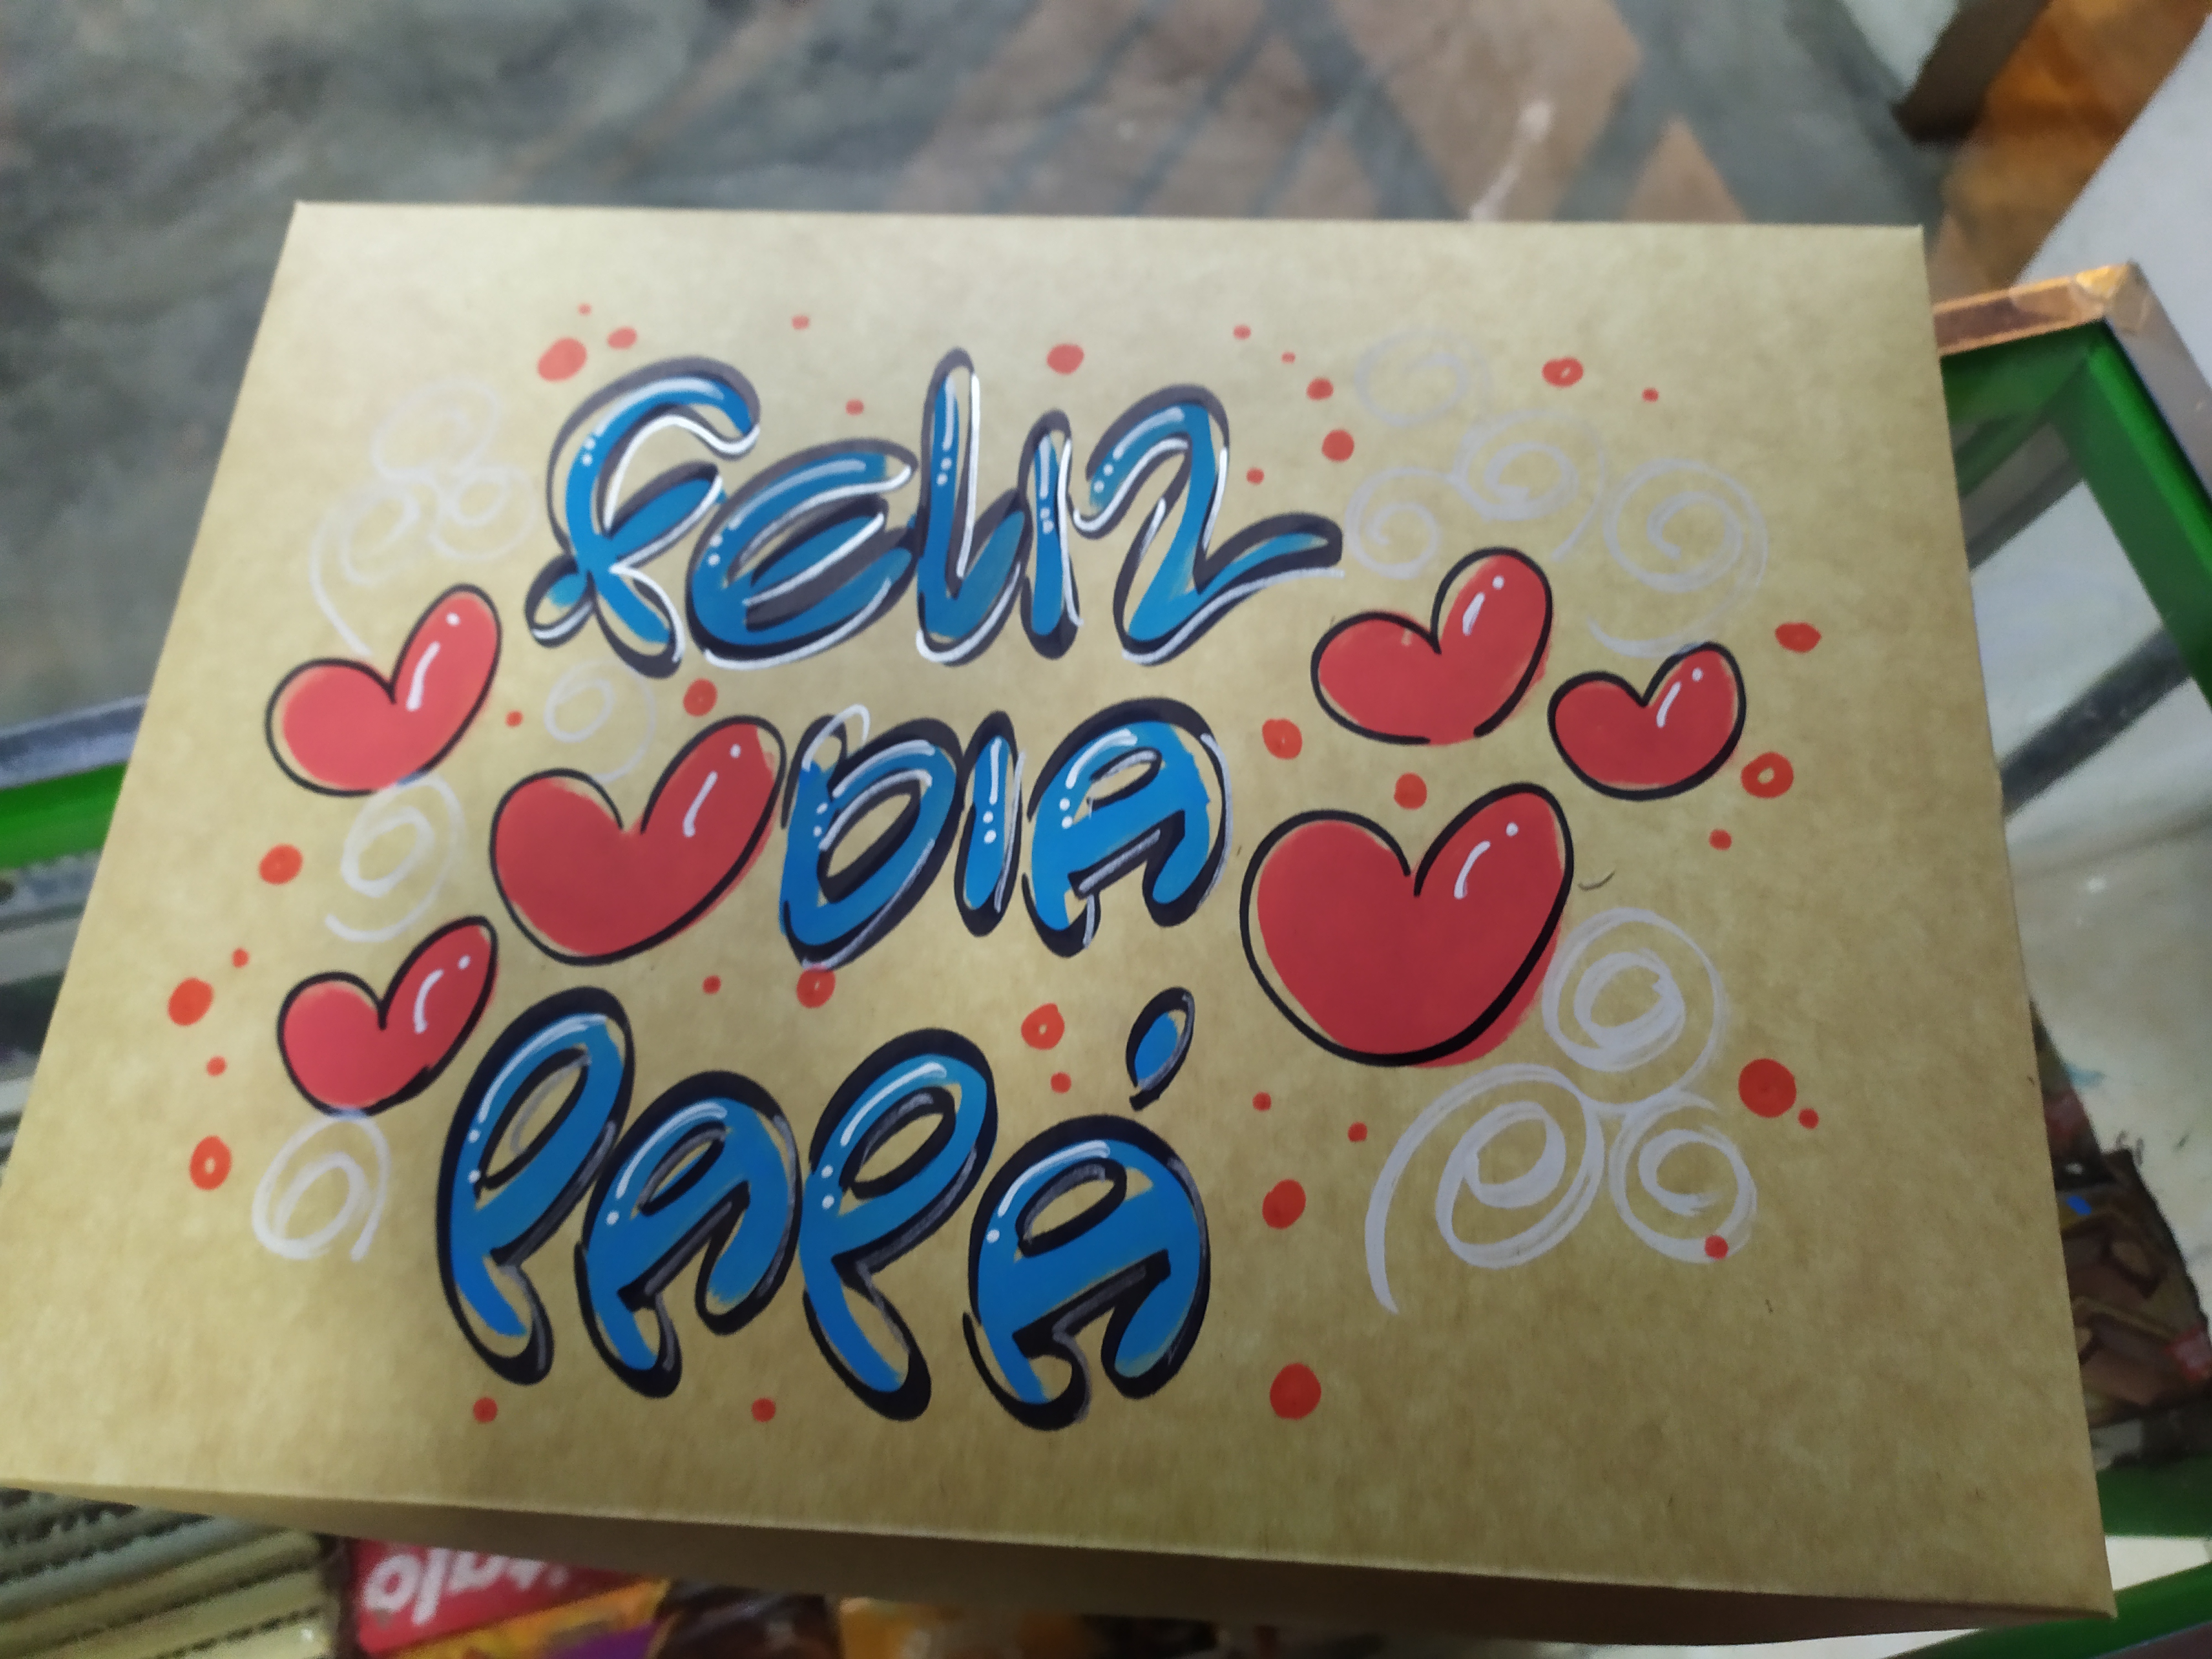 FELIZ
DIA
PAPÁ